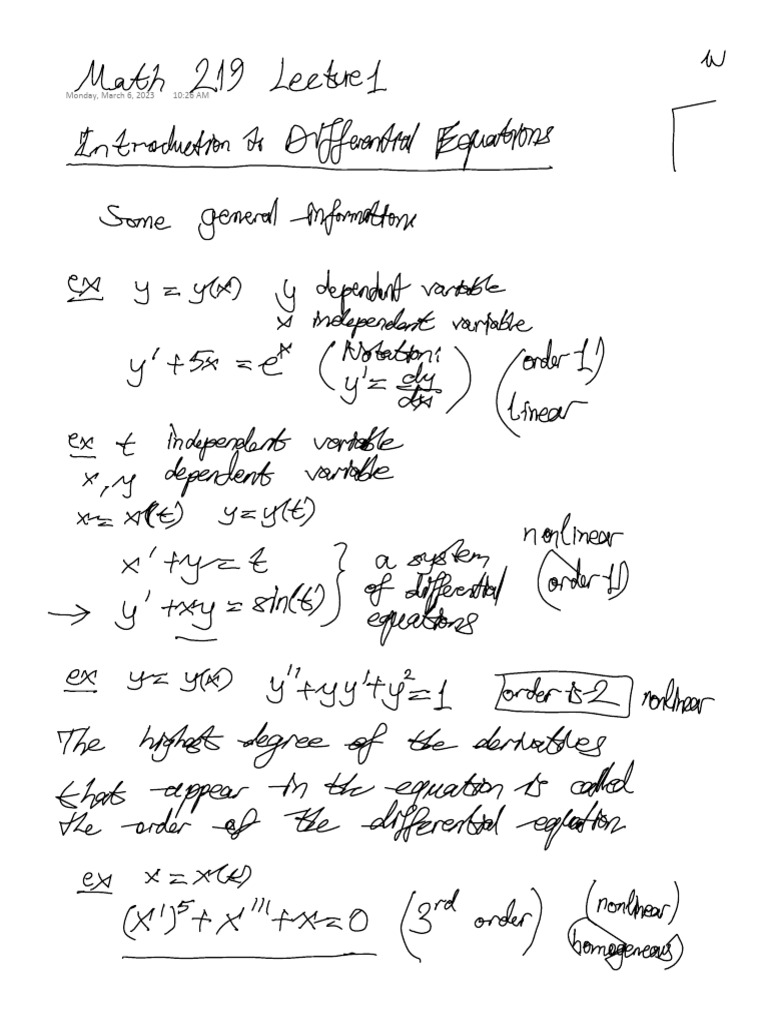 Math 219 Lecture 1
Monday, March 6, 2023 10:26 AM
Introduction to Differential Equations
Some general information
ex y = y(x) y dependent variable
x independent variable
y' + 5x = e^x (Notation: y' = dy/dx) (order 1) (linear
ex t independent variable
x, y dependent variable
x = x(t) y = y(t)
x' + y = t } a system of differential equations nonlinear (order 1)
→ y' + xy = sin(t)
ex y = y(x) y'' + yy' + y^2 = 1 order is 2 nonlinear
The highest degree of the derivatives
that appear in the equation is called
the order of the differential equation
ex x = x(t)
(x')^5 + x''' + x = 0 (3rd order) (nonlinear) (homogeneous)